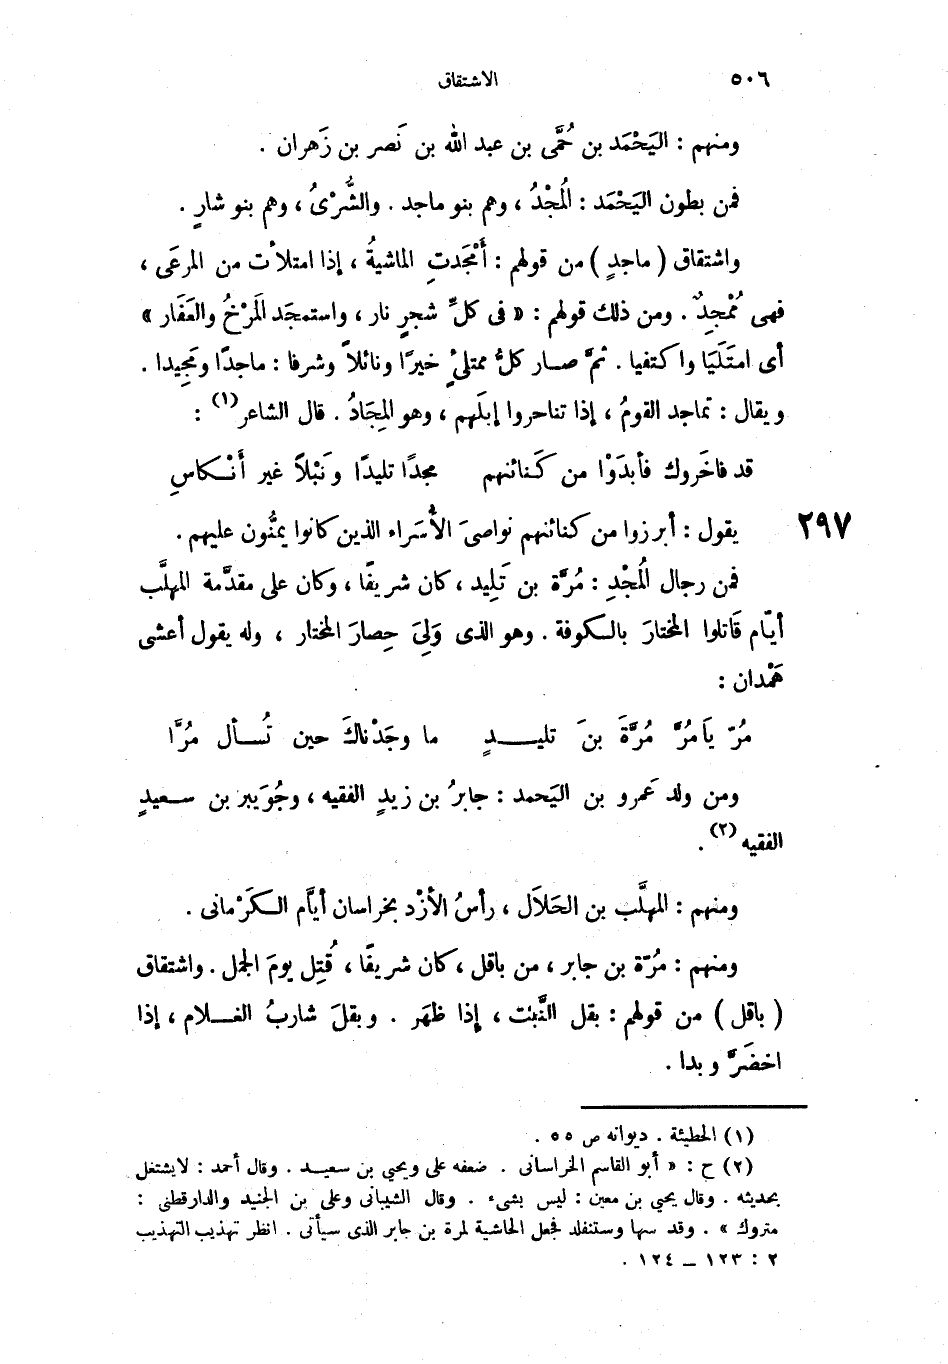 ٥٠٦ الاشتقاق
ومنهم : اليَحْمَد بن حُمَّى بن عبد الله بن نَصر بن زَهران .
فمن بطون اليَحْمَد : المُجْدُ ، وهم بنو ماجد . والشُّرْىُ ، وهم بنو شارٍ .
واشتقاق ( ماجدٍ ) من قولهم : أَمْجَدتِ الماشيةُ ، إذا امتلأت من المرعَى ،
فهى مُمْجِدٌ . ومن ذلك قولهم : « فى كلِّ شجرٍ نار ، واستمجَد المَرْخُ والعَفَار »
أى امتَلَيَا واكتفيا . ثمَّ صار كلُّ ممتلئٍ خيرًا ونائلاً وشرفا : ماجدًا ومَجِيدا .
ويقال : تماجد القومُ ، إذا تناحروا إبلَهم ، وهو المِجَادُ . قال الشاعر (١) :
قد فاخَروك فأبدَوْا من كَنائنهم مجدًا تليدًا ونَبْلاً غير أَنْكاسِ
٢٩٧ يقول : أبرزوا من كنائنهم نواصىَ الأُسَراء الذين كانوا يمنُّون عليهم .
فمن رجال المُجْدِ : مُرَّة بن تَلِيد ، كان شريفًا ، وكان على مقدَّمة المهلَّب
أيّام قَاتلوا المختارَ بالكوفة . وهو الذى وَلِىَ حِصارَ المختار ، وله يقول أعشى
هَمْدان :
مُرّ يَامُرَّ مُرَّةَ بنَ تليدٍ ما وجَدْناكَ حين تُسأل مُرَّا
ومن ولد عَمرو بن اليَحمد : جابرُ بن زيدٍ الفقيه ، وجُوَيبر بن سعيدٍ
الفقيه (٢) .
ومنهم : المهلَّب بن الحَلاَل ، رأسُ الأزْد بخراسان أيَّام الكَرْمانى .
ومنهم : مُرّة بن جابر ، من باقل ، كان شريفًا ، قُتِل يومَ الجمل . واشتقاق
( باقل ) من قولهم : بقل النَّبت ، إذا ظهَر . وبقلَ شاربُ الغلام ، إذا
اخضَرَّ وبدا .
(١) الحطيئة . ديوانه ص ٥٥ .
(٢) ح : « أبو القاسم الخراسانى . ضعفه على ويحيي بن سعيد . وقال أحمد : لايشتغل
بحديثه . وقال يحيي بن معين : ليس بشىء . وقال الشيبانى وعلى بن الجنيد والدارقطنى :
متروك » . وقد سها وستنفلد فجعل الحاشية لمرة بن جابر الذى سيأتى . انظر تهذيب التهذيب
٢ : ١٢٣ – ١٢٤ .